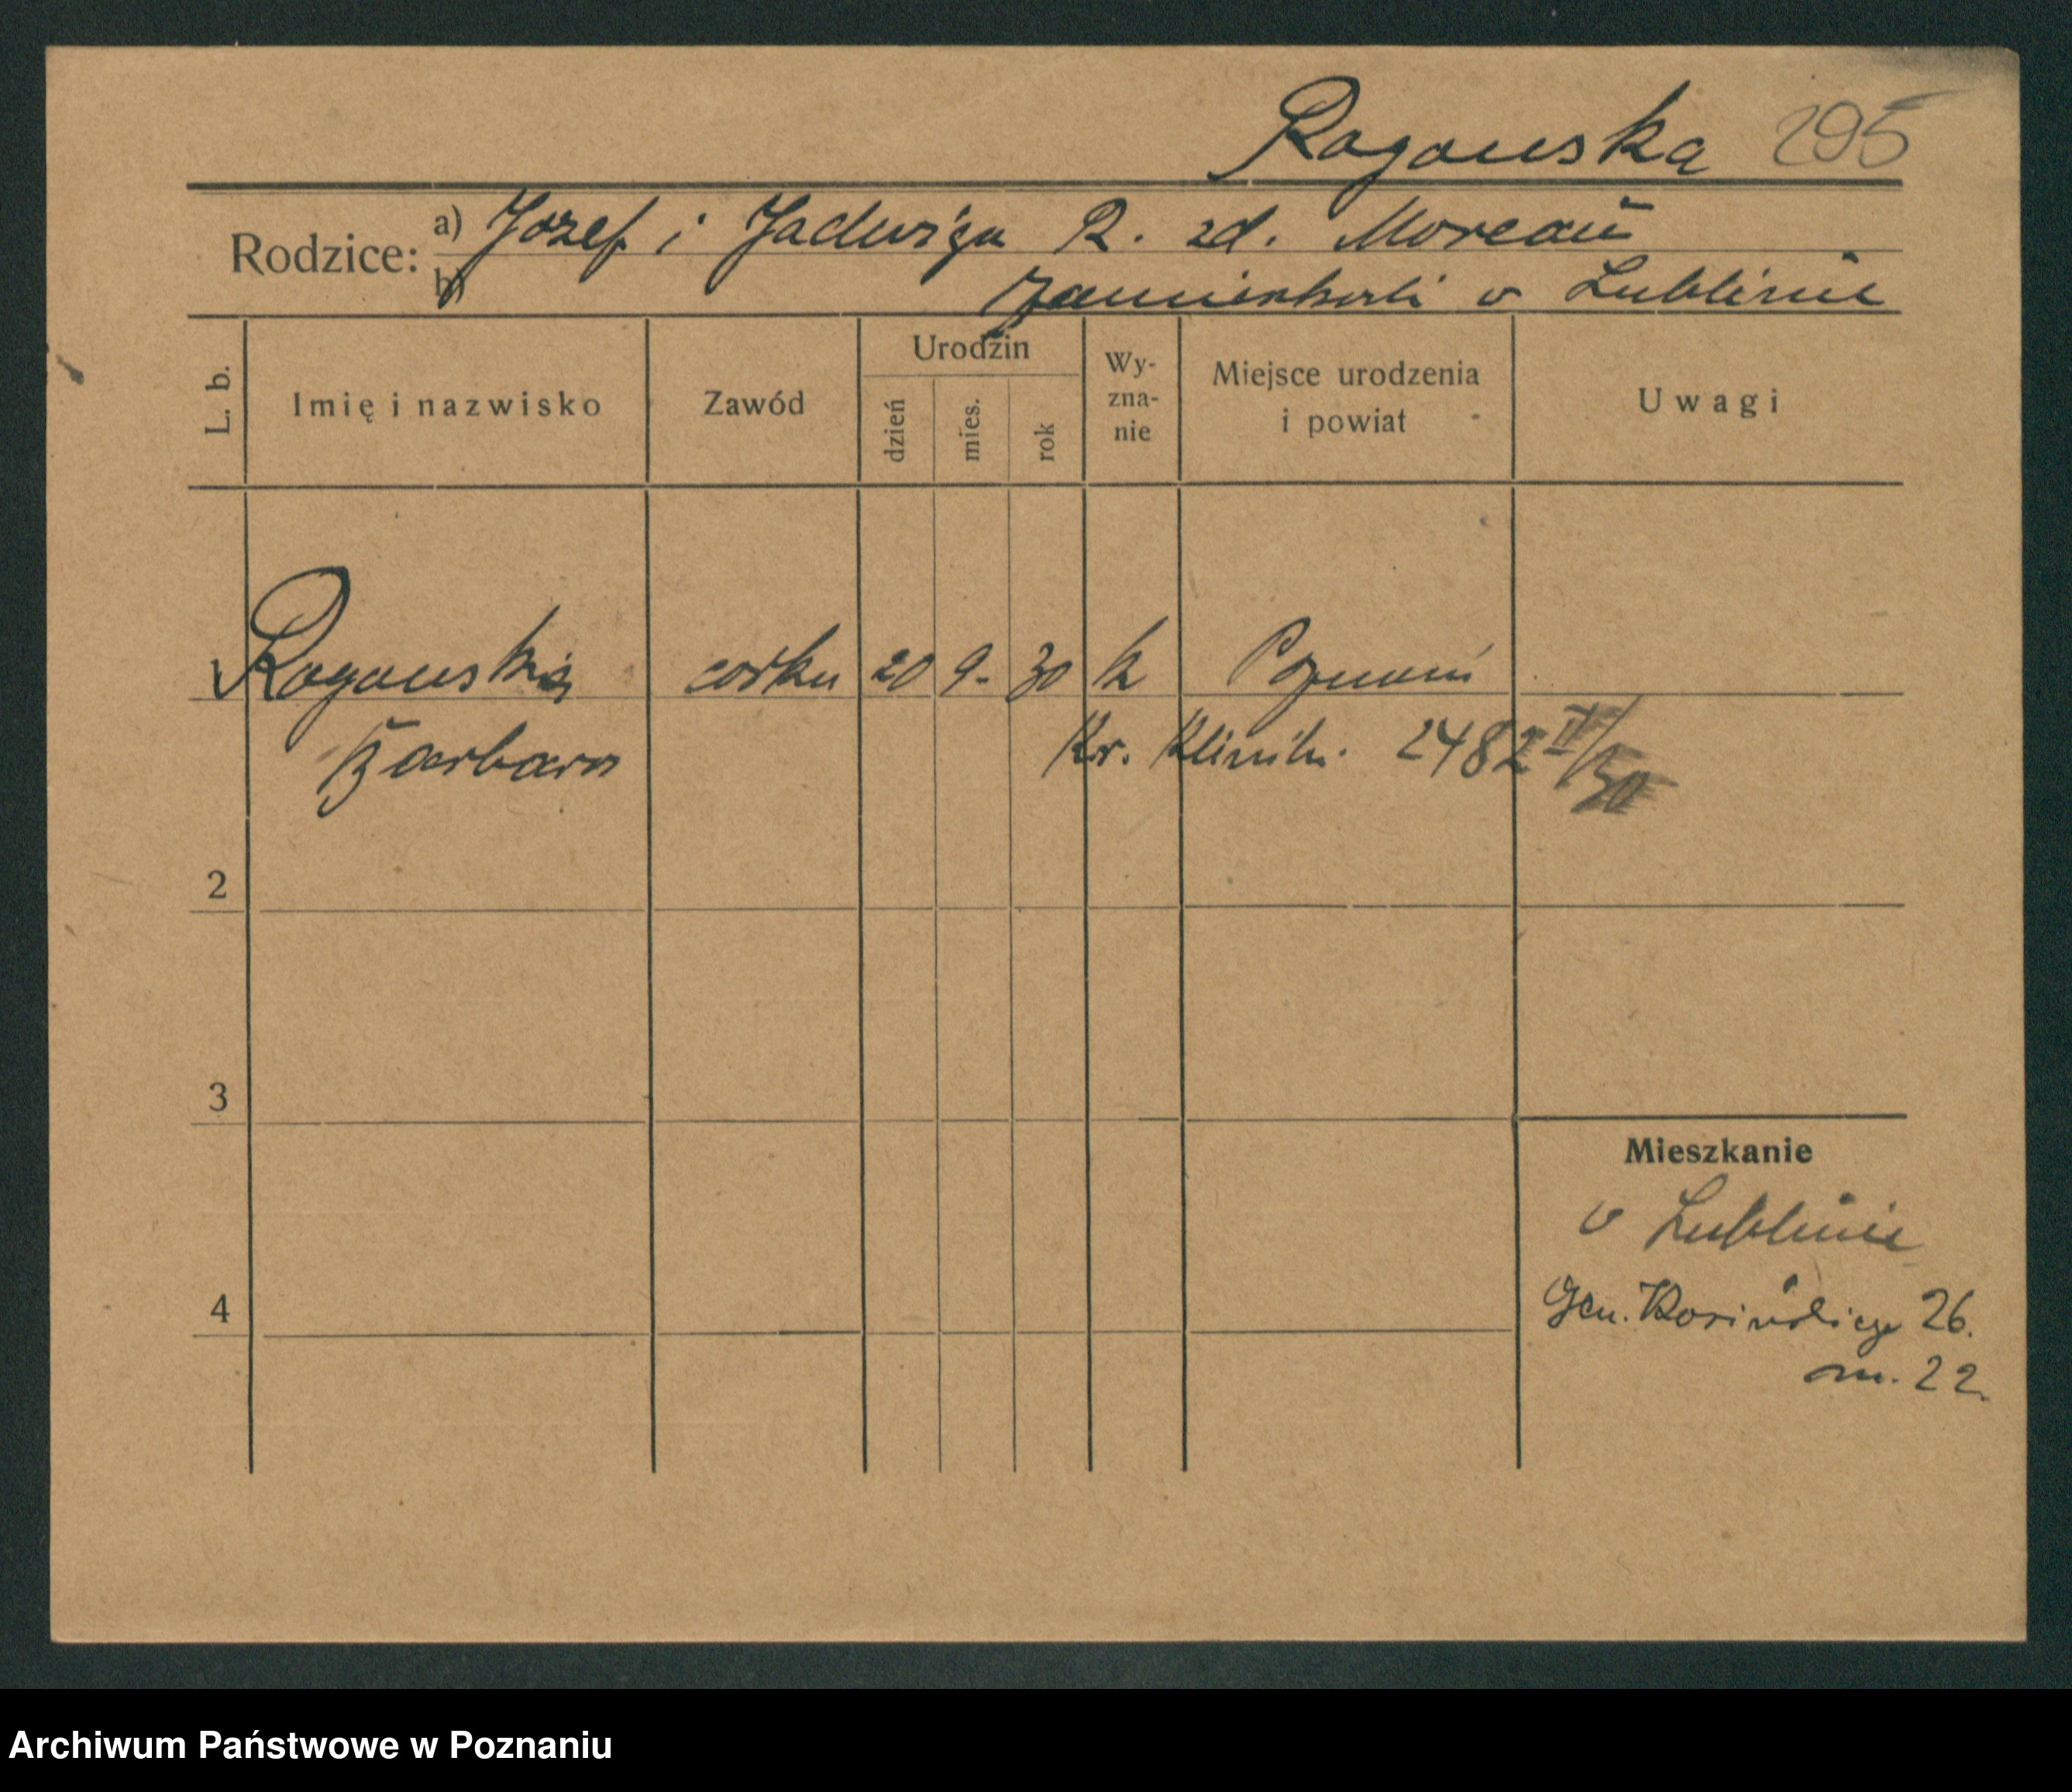 Rogowska 295
Rodzice: a) Józef i Jadwiga R. zd. Moreau
b) zamieszkali w Lublinie
L. b.
Imię i nazwisko
Zawód
Urodzin
dzień
mies.
rok
Wy-
zna-
nie
Miejsce urodzenia
i powiat
Uwagi
1 Rogowska córka 20 9. 30 k Poznań
Barbara Kr. Klinik. 2482 II/30
2
3
Mieszkanie
w Lublinie
4
Gen. 26.
m. 22.
Archiwum Państwowe w Poznaniu